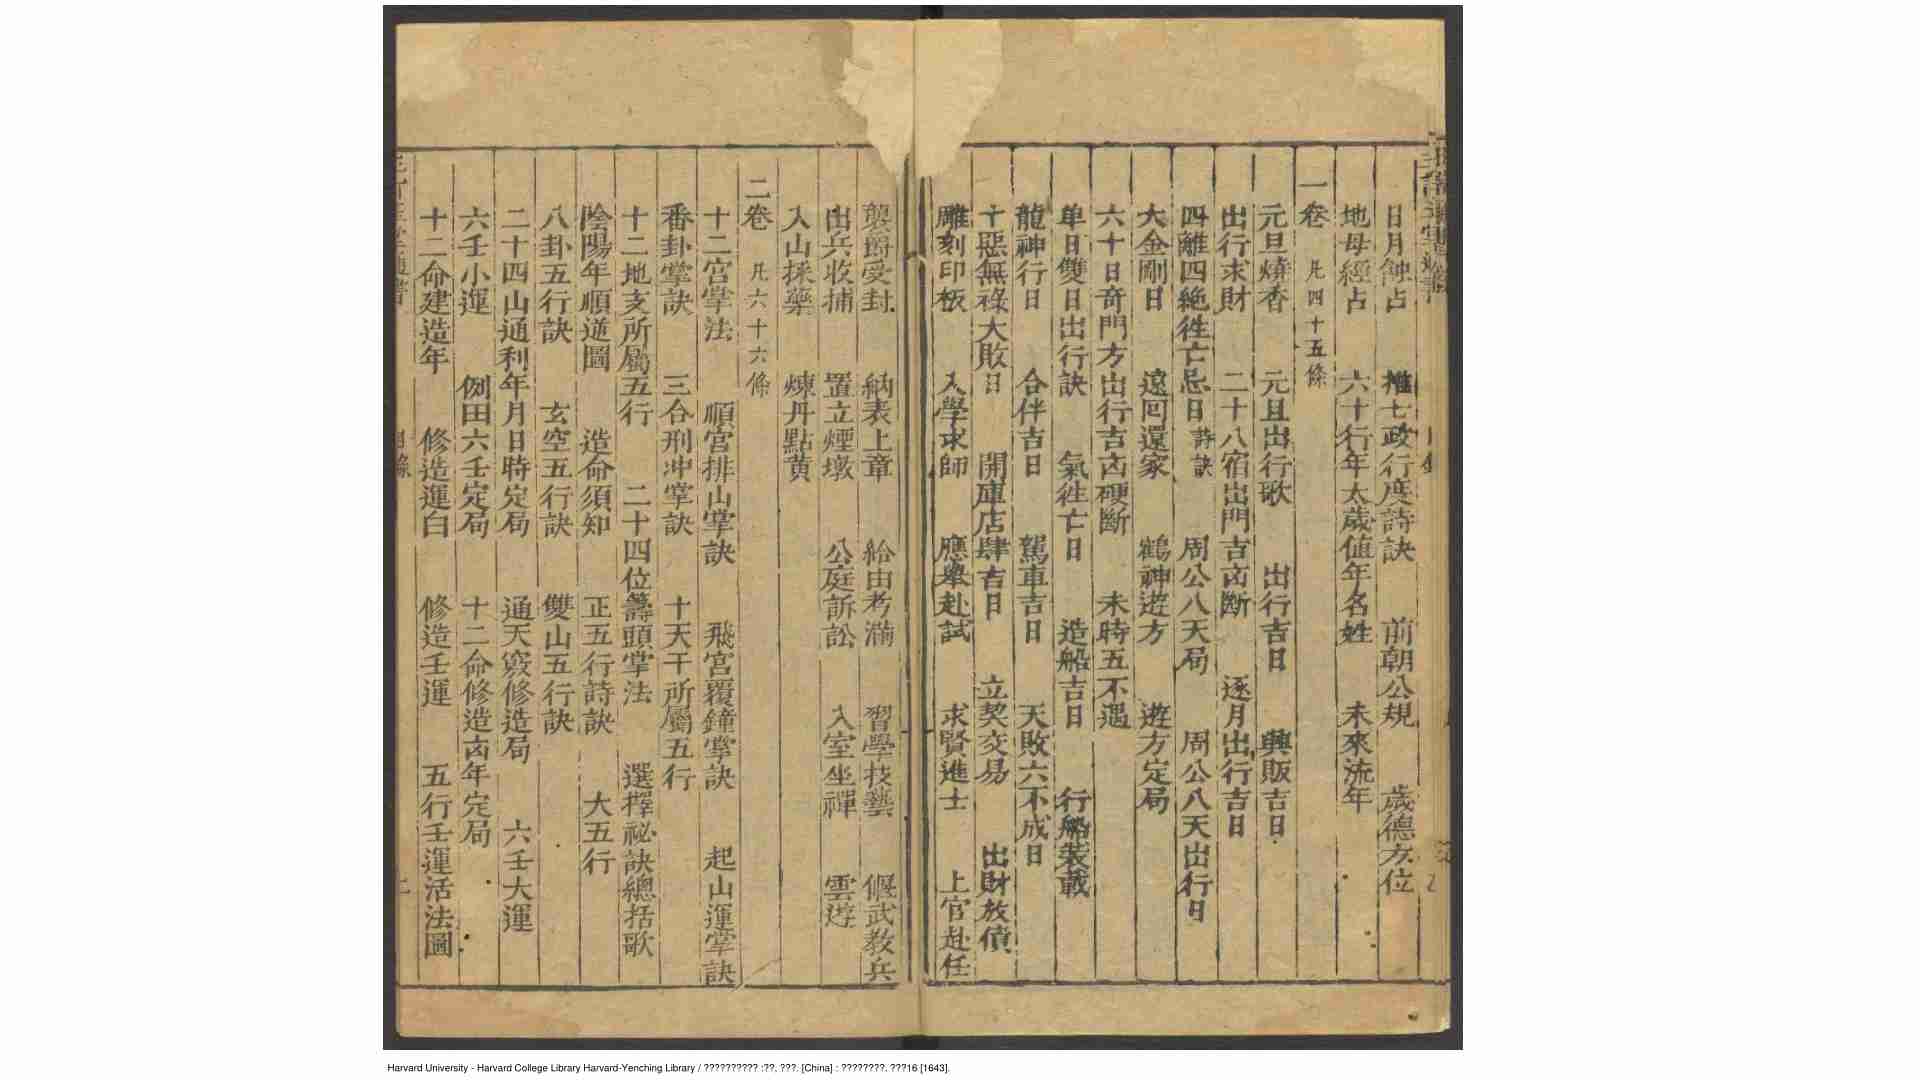 日月蝕占 推七政行度詩訣 前朝公規 歲德方位
地母經占 六十行年太歲値年名姓 未來流年
一卷 凡四十五條
元旦燒香 元旦出行歌 出行吉日 興販吉日
出行求財 二十八宿出門吉凶斷 逐月出行吉日
四離四絶徃亡忌日詩訣 周公八天局 周公八天出行日
大金剛日 遠回還家 鶴神遊方 遊方定局
六十日奇門方出行吉凶硬斷 未時五不遇
单日雙日出行訣 氣徃亡日 造船吉日 行船裝載
龍神行日 合伴吉日 駕車吉日 天敗六不成日
十惡無祿大敗日 開庫店肆吉日 立契交易 出財放債
雕刻印板 入學求師 應舉赴試 求賢進士 上官赴任
襲爵受封 納表上章 給由考滿 習學技藝 偃武教兵
出兵收捕 置立煙墩 公庭訴訟 入室坐禪 雲遊
入山採藥 煉丹點黄
二卷 凡六十六條
十二宫掌法 順宫排山掌訣 飛宫覆鐘掌訣 起山運掌訣
番卦掌訣 三合刑冲掌訣 十天干所屬五行
十二地支所屬五行 二十四位籌頭掌法 選擇祕訣總括歌
陰陽年順逆圖 造命須知 正五行詩訣 大五行
八卦五行訣 玄空五行訣 雙山五行訣
二十四山通利年月日時定局 通天竅修造局 六壬大運
六壬小運 例田六壬定局 十二命修造凶年定局
十二命建造年 修造運白 修造壬運 五行壬運活法圖